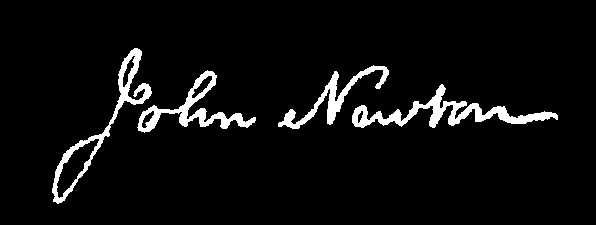 John Newton